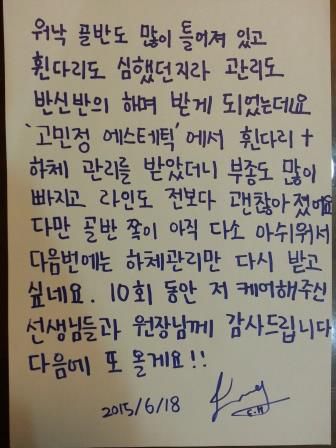 워낙 골반도 많이 틀어져 있고
휜다리도 심했던지라 관리도
반신반의 하며 받게 되었는데요
'고민정 에스테틱' 에서 휜다리 +
하체 관리를 받았더니 부종도 많이
빠지고 라인도 전보다 괜찮아졌어요
다만 골반 쪽이 아직 다소 아쉬워서
다음번에는 하체관리만 다시 받고
싶네요. 10회 동안 저 케어해주신
선생님들과 원장님께 감사드립니다
다음에 또 올게요!!
2015/6/18